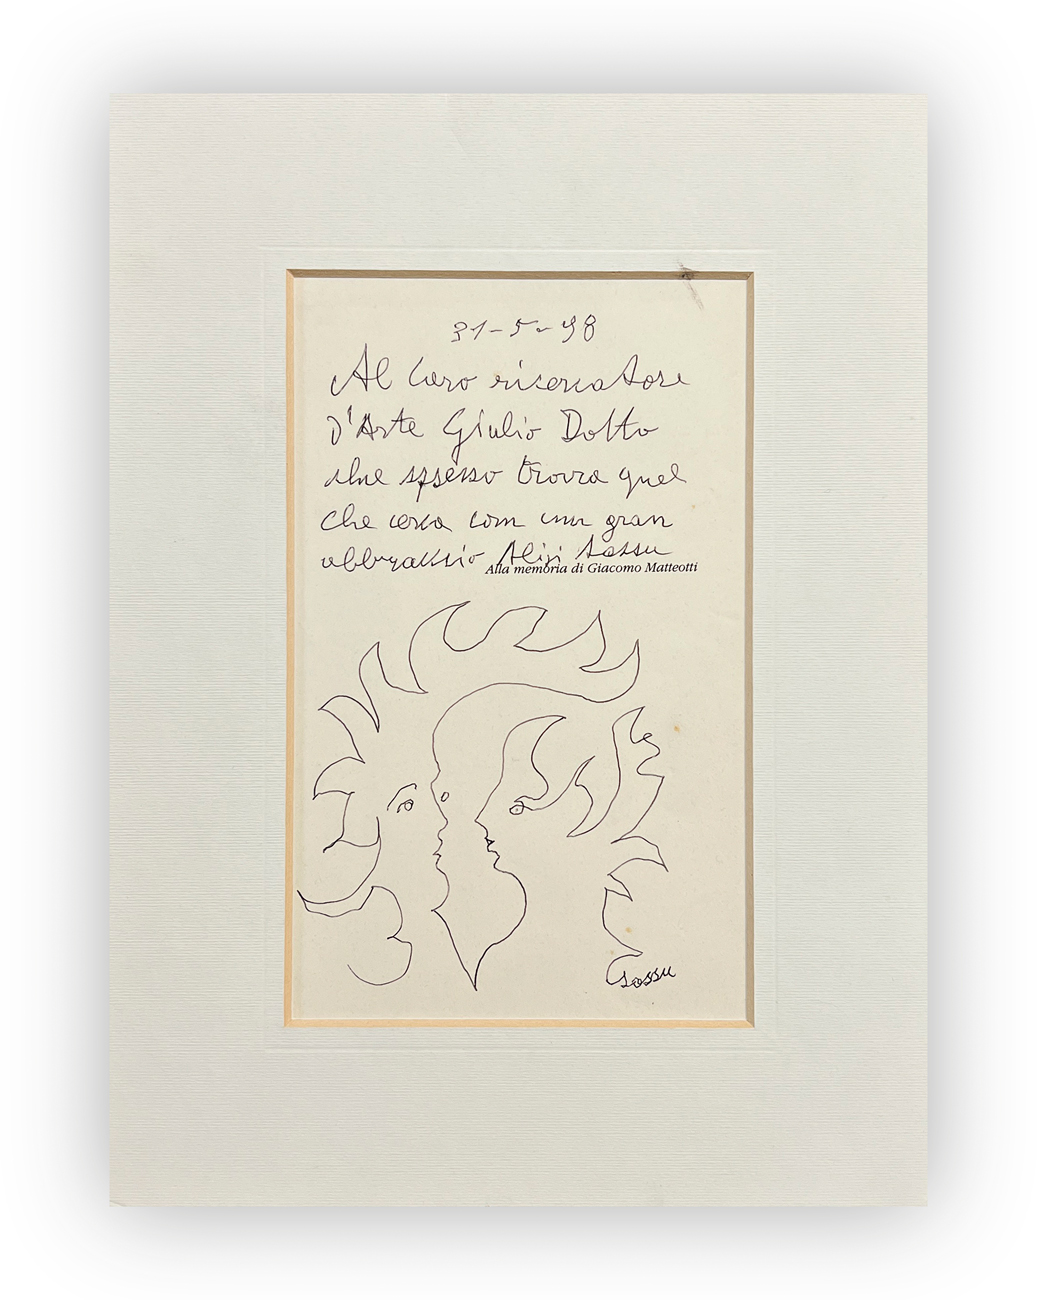 31-5-98
Al Caro ricercatore
d'Arte Giulio Dolto
che spesso trova quel
che cerca con un gran
abbraccio Aligi Sassu
Alla memoria di Giacomo Matteotti
Sassu